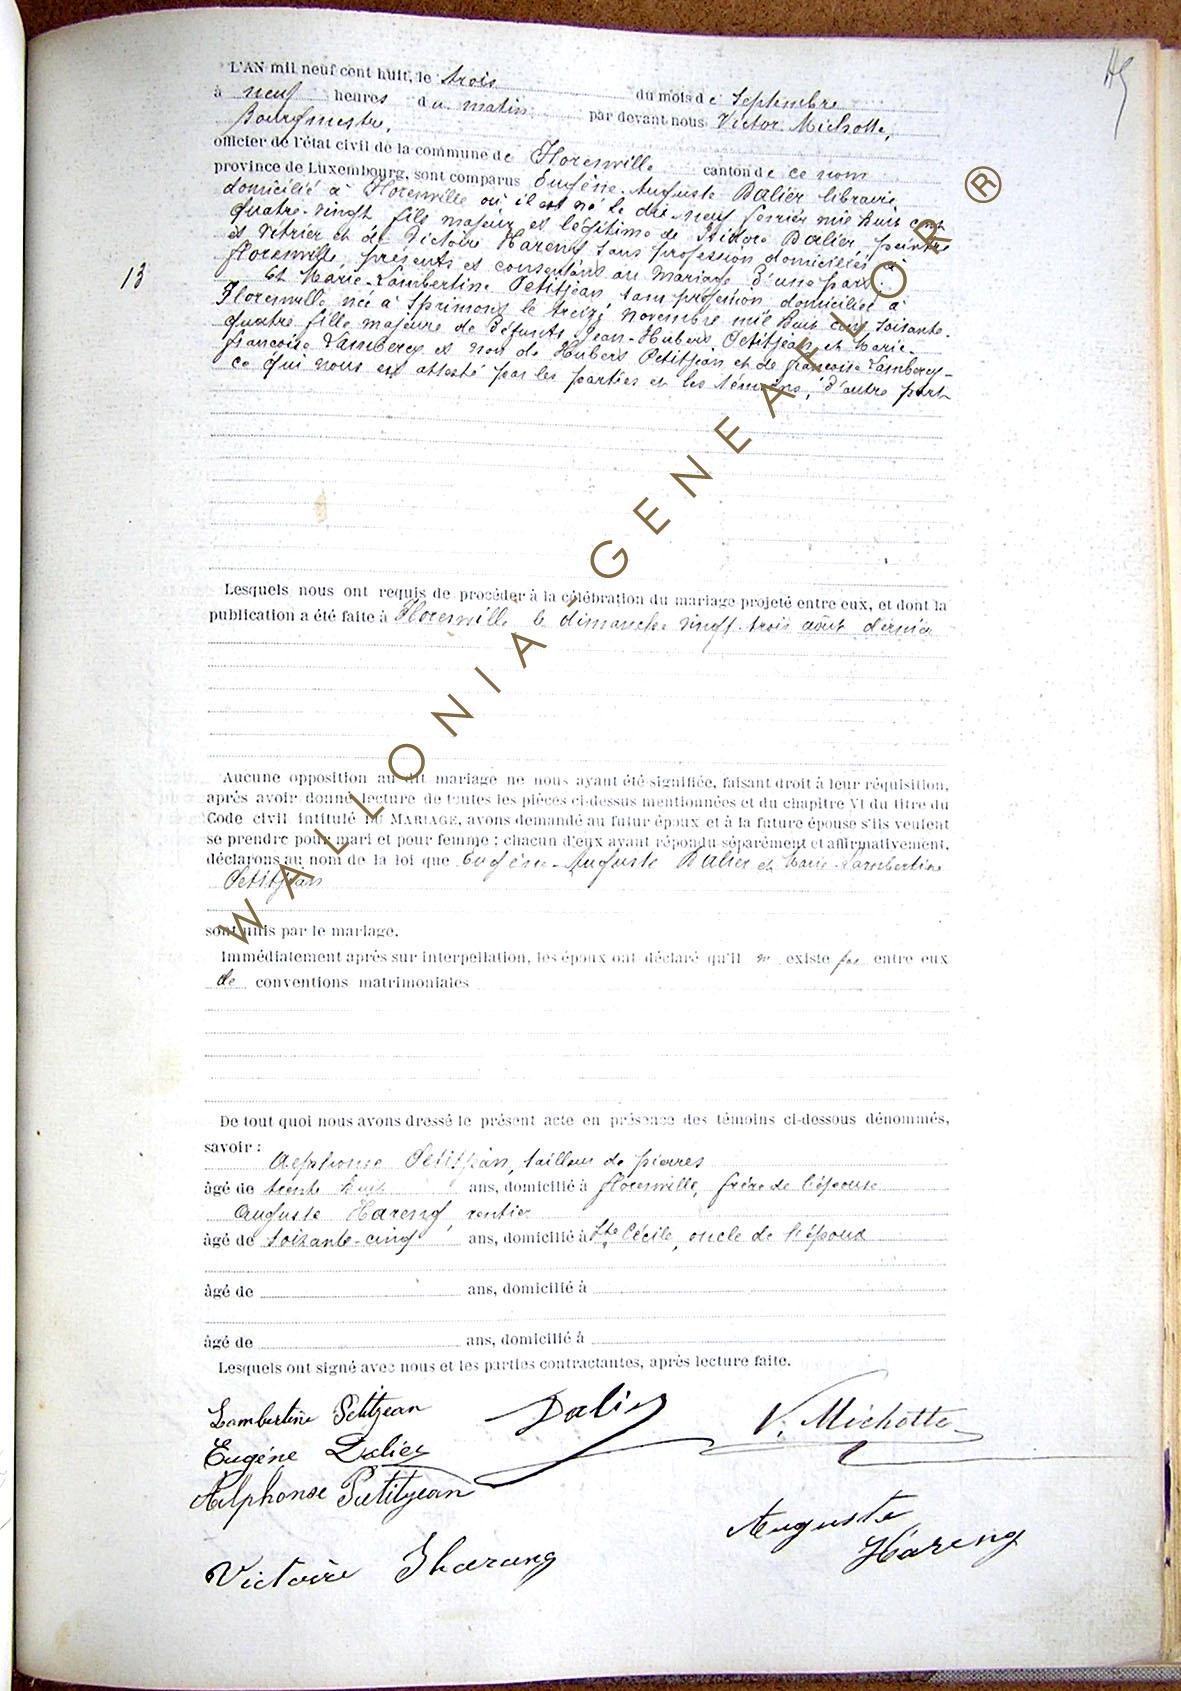 45
L'AN mil neuf cent huit, le trois du mois de Septembre
à neuf heures du matin par devant nous Victor Michotte,
Bourgmestre,
officier de l'état civil de la commune de Florenville canton de ce nom
province de Luxembourg, sont comparus Eugène-Auguste Dalier libraire
domicilié à Florenville où il est né le dix-neuf février mil huit cent
quatre-vingt fils majeur et légitime de Isidore Dalier, peintre
et vitrier et de Victoire Hareng sans profession domiciliés à
Florenville, présents et consentans au mariage d'une part.
13
Et Marie-Lambertine Petitjean, sans profession domiciliée à
Florenville née à Sprimont le treize novembre mil huit cent soixante
quatre fille majeure de défunts Jean-Hubert Petitjean et Marie-
françoise Lambercy et non de Hubert Petitjean et de françoise Lambercy-
ce qui nous est attesté par les parties et les témoins, d'autre part
Lesquels nous ont requis de procéder à la célébration du mariage projeté entre eux, et dont la
publication a été faite à Florenville le dimanche vingt-trois août dernier
Aucune opposition au dit mariage ne nous ayant été signifiée, faisant droit à leur réquisition,
après avoir donné lecture de toutes les pièces ci-dessus mentionnées et du chapitre VI du titre du
Code civil intitulé DU MARIAGE, avons demandé au futur époux et à la future épouse s'ils veulent
se prendre pour mari et pour femme ; chacun d'eux ayant répondu séparément et affirmativement,
déclarons au nom de la loi que Eugène-Auguste Dalier et Marie-Lambertine
Petitjean
sont unis par le mariage.
Immédiatement après sur interpellation, les époux ont déclaré qu'il n' existe pas entre eux
de conventions matrimoniales
De tout quoi nous avons dressé le présent acte en présence des témoins ci-dessous dénommés,
savoir :
Alphonse Petitjean, tailleur de pierres
âgé de trente huit ans, domicilié à florenville, frère de l'épouse
Auguste Hareng, rentier
âgé de soixante-cinq ans, domicilié à Ste Cécile, oncle de l'époux
âgé de ans, domicilié à
âgé de ans, domicilié à
Lesquels ont signé avec nous et les parties contractantes, après lecture faite.
Lambertine Petitjean Dalier V. Michotte
Eugéne Dalier
Alphonse Petitjean
Auguste
Hareng
Victoire Hareng
WALLONIA-GENEAFLOR ®